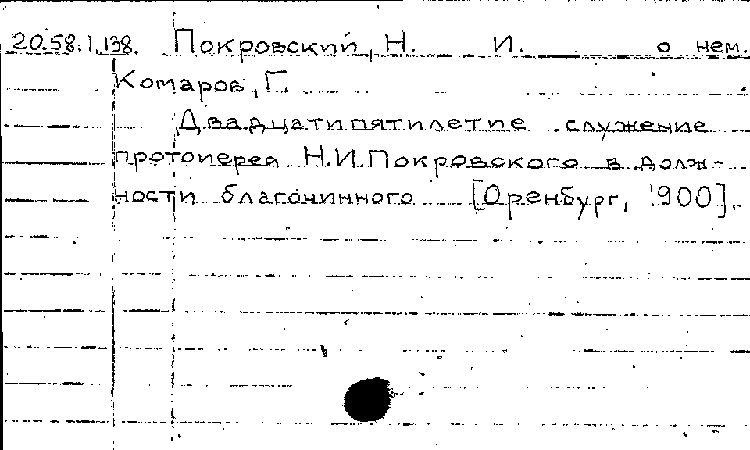 20.58.1.138. Покровский, Н. И. о нем.
Комаров, Г.
Двадцатипятилетие служение
протоиерея Н.И.Покровского в долж-
ности благочинного [Оренбург, 1900].